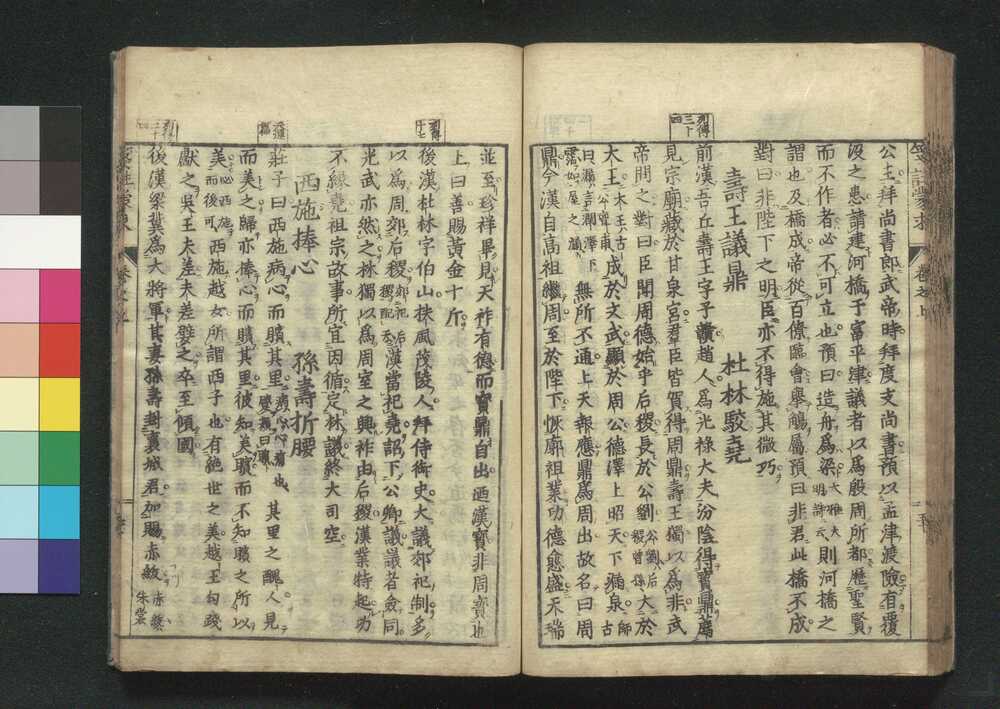 公主拜尚書郎武帝時拜度支尚書預以孟津渡險有覆
沒之患請建河橋于富平津議者以爲殷周所都歷聖賢
而不作者必不可立也預曰造舟爲梁大雅大明詩則河橋之
謂也及橋成帝從百僚臨會擧觴屬預曰非君此橋不成
對曰非陛下之明臣亦不得施其微巧
壽王議鼎 杜林駁堯
列傳三十四
前漢吾丘壽王字子贛趙人爲光祿大夫汾陰得寶鼎薦
見宗廟藏於甘泉宮群臣皆賀得周鼎壽王獨以爲非武
帝問之對曰臣聞周德始乎后稷長於公劉公劉后稷曾孫大於
大王大王古公亶甫成於文武顯於周公德澤上昭天下漏泉師古
曰漏言潤澤下霑如屋之漏無所不通上天報應鼎爲周出故名曰周
鼎今漢自高祖繼周至於陛下恢廓祖業功德愈盛天瑞
並至珍祥畢見天祚有德而寶鼎自出迺漢寶非周寶也
上曰善賜黃金十斤
列傳十七
後漢杜林字伯山扶風茂陵人拜侍御史大議郊祀制多
以爲周郊后稷郊祀后稷配天漢當祀堯詔下公卿議議者僉同
光武亦然之林獨以爲周室之興祚由后稷漢業特起功
不緣堯祖宗故事所宜因循定林議終大司空
西施捧心 孫壽折腰
莊子曰西施病心而矉其里其里之醜人見
而美之歸亦捧心而矉其里彼知美矉而不知矉之所以
美必西施而後可西施越女所謂西子也有絶世之美越王句踐
獻之吳王夫差夫差嬖之卒至傾國
列傳二十四
後漢梁冀爲大將軍其妻孫壽封襄城君加賜赤紱